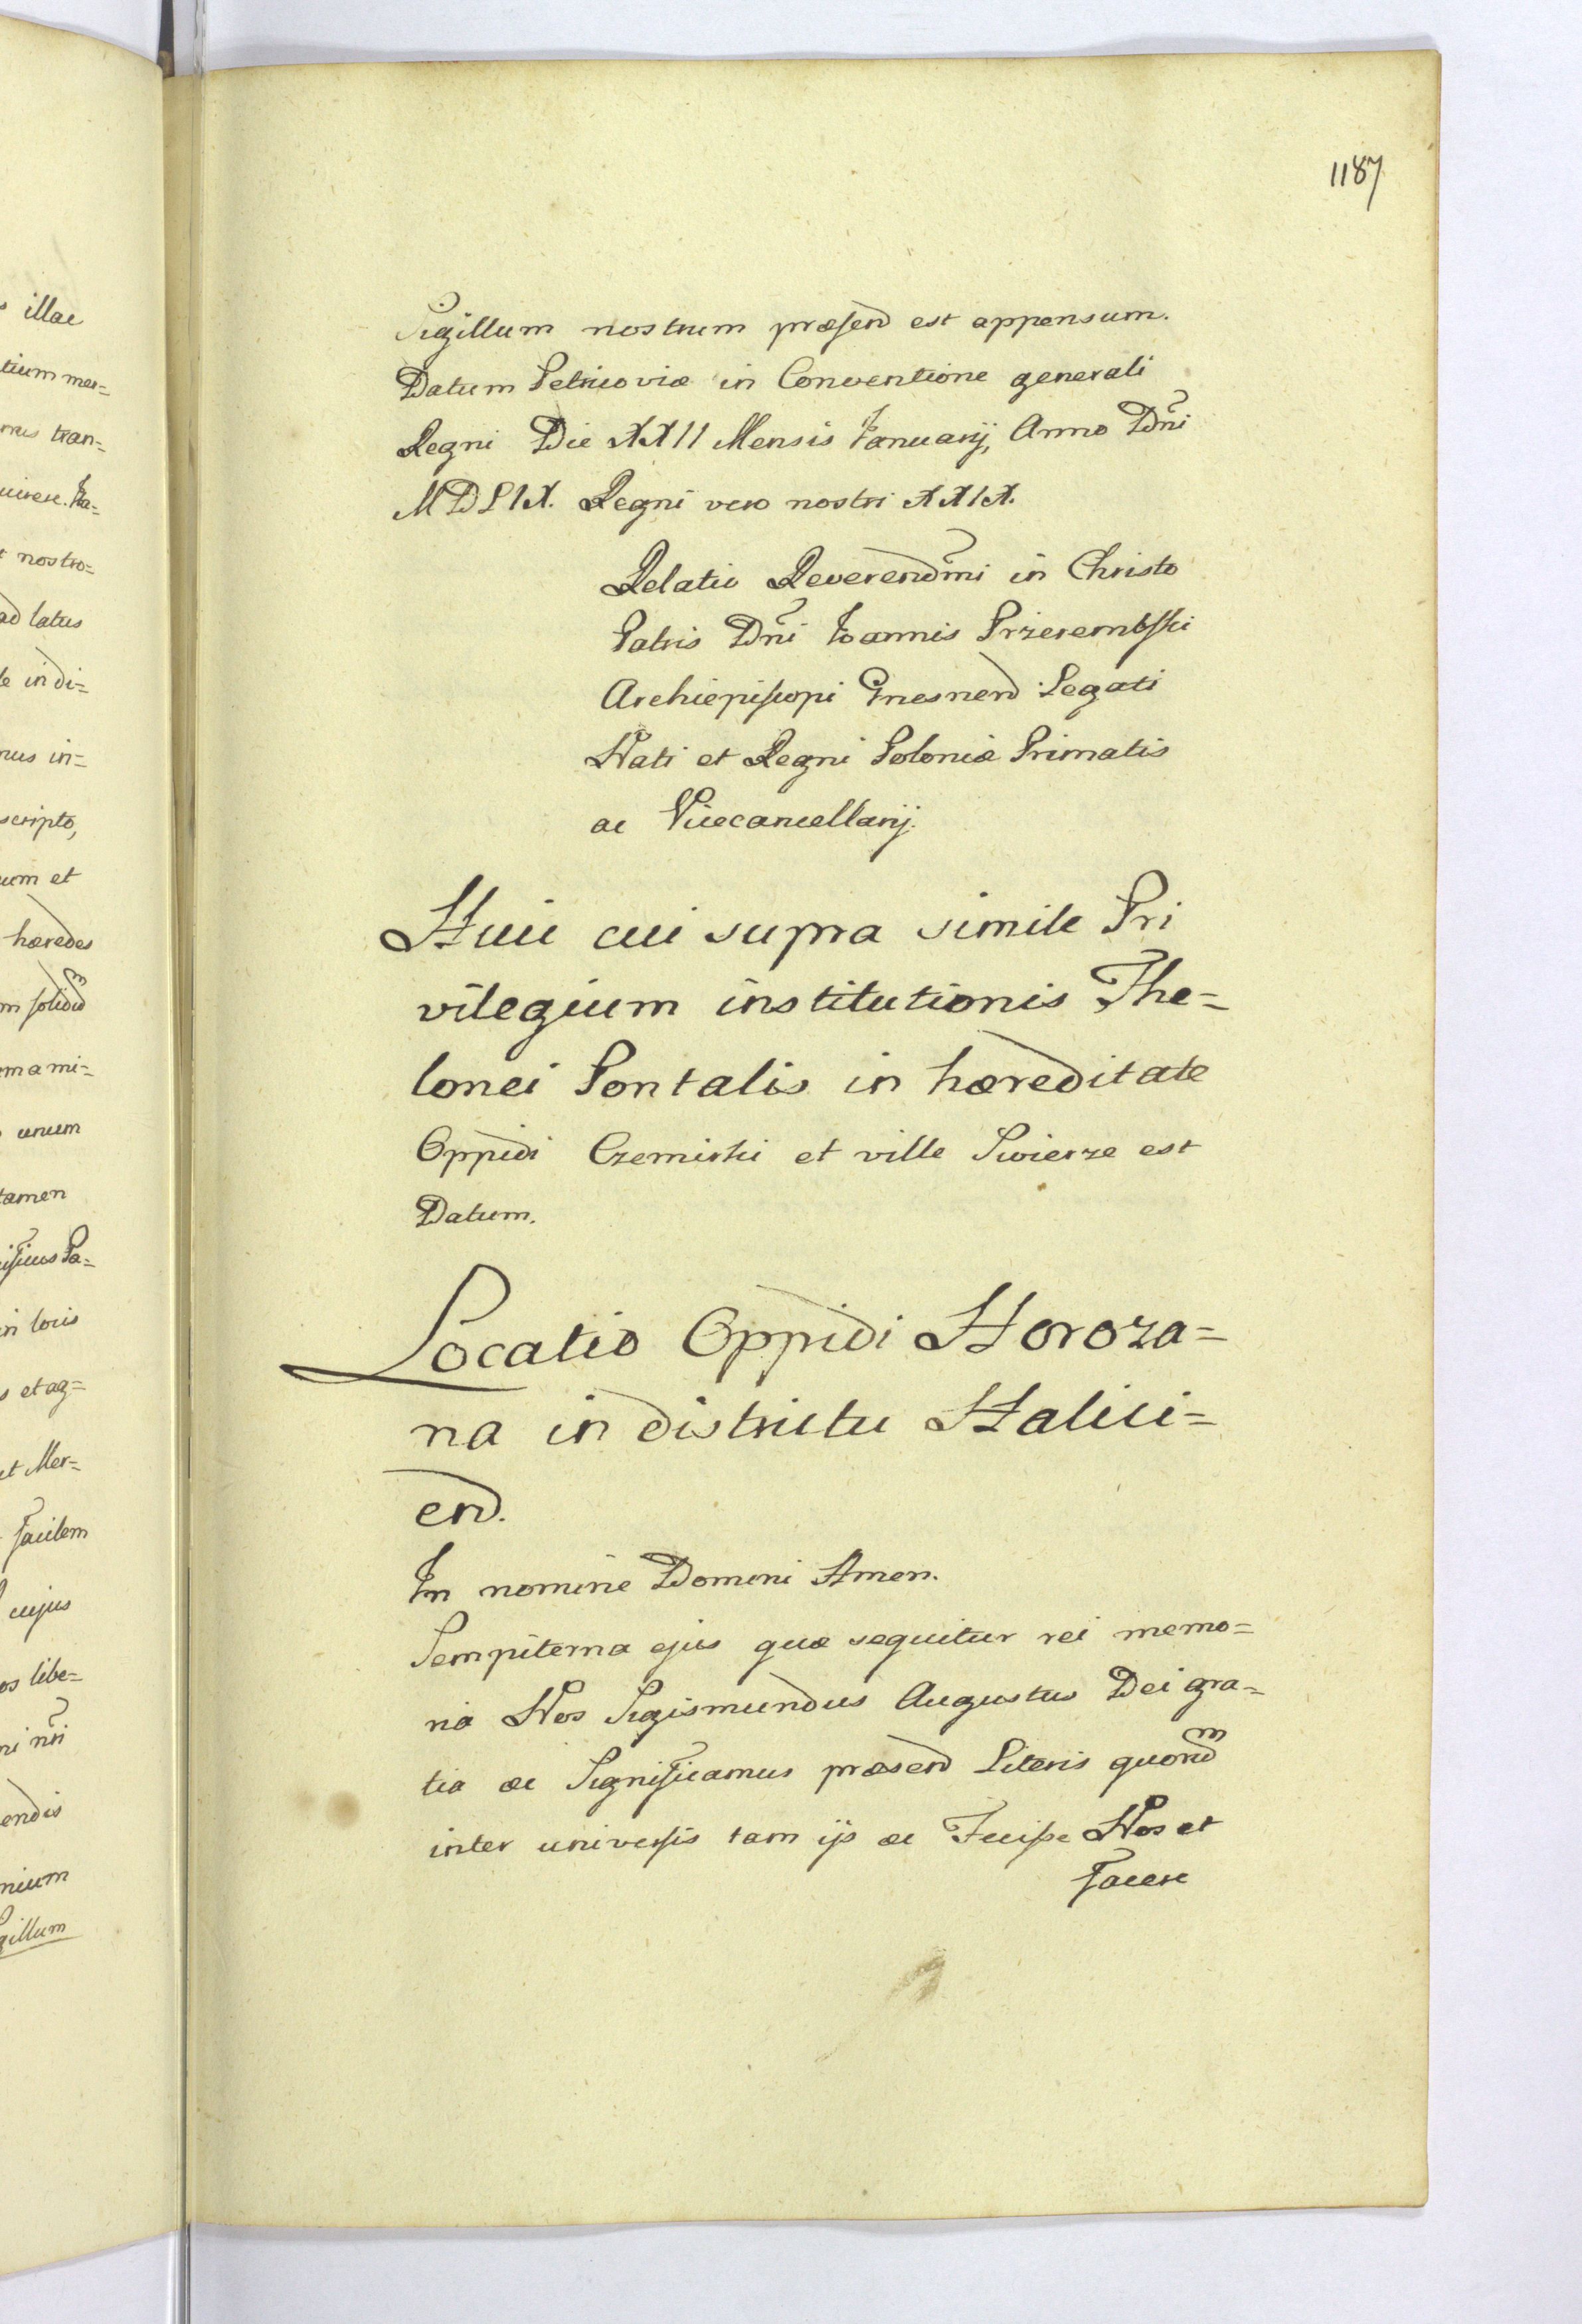 1187
Sigillum nostrum præsend est appensum.
Datum Petricoviæ in Conventione generali
Regni Die XXII Mensis Januarij, Anno Dni
MDLIX. Regni vero nostri XXIX.
Relatio Reverendmi in Christo
Patris Dni Joannis Przerembski
Archiepiscopi Gnesnend Legati
Nati et Regni Poloniæ Primatis
ac Vicecancellarij.
Huic cui supra simile Pri
vilegium institutionis The=
lonei Pontalis in hæreditate
Oppidi Czemirki et ville Swierze est
Datum.
Locatio Oppidi Horoza=
na in districtu Halici=
end.
In nomine Domini Amen.
Sempiterna ejus quæ sequitur rei memo=
ria Nos Sigismundus Augustus Dei gra=
tia ac Significamus præsend Literis quord
inter universis tam ijs ac Fuisse Nos et
Facere
illae
tium mer=
tran=
nostro=
ad latus
le in di=
nus in=
scripto,
um et
hæredes
m solid
ma mi=
unum
tamen
in locis
et ag=
et Mer=
Facilem
cujus
os libe=
ni nri
endis
nium
gillum